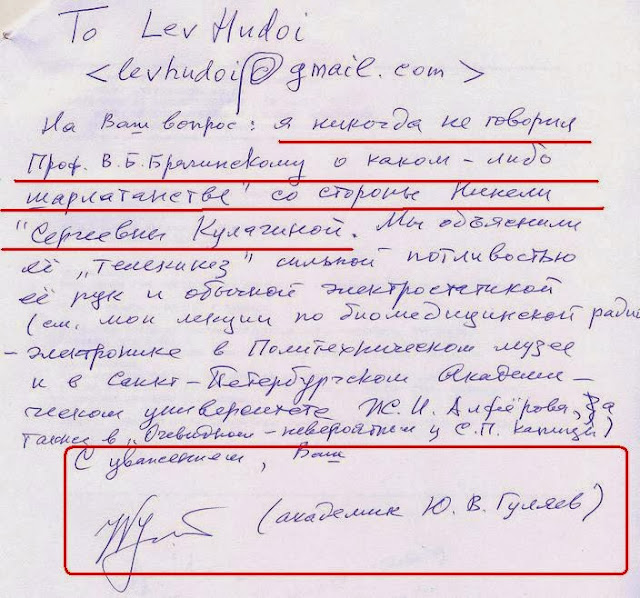 To Lev Hudoi
<levhudoi@gmail.com>
На Ваш вопрос: я никогда не говорил
Проф. В.Б. Брагинскому о каком-либо
шарлатанстве" со стороны Нинели
"Сергеевны Кулагиной. Мы объяснили
её „телекинез" сильной потливостью
её рук и обычной электростатикой
(см. мои лекции по биомедицинской радио
-электронике в Политехническом музее
и в Санкт-Петербургском Академи-
ческом университете Ж.И. Алфёрова, а
также в „Очевидном-невероятном у С.П. Капицы)
С уважением, Ваш
(академик Ю.В. Гуляев)